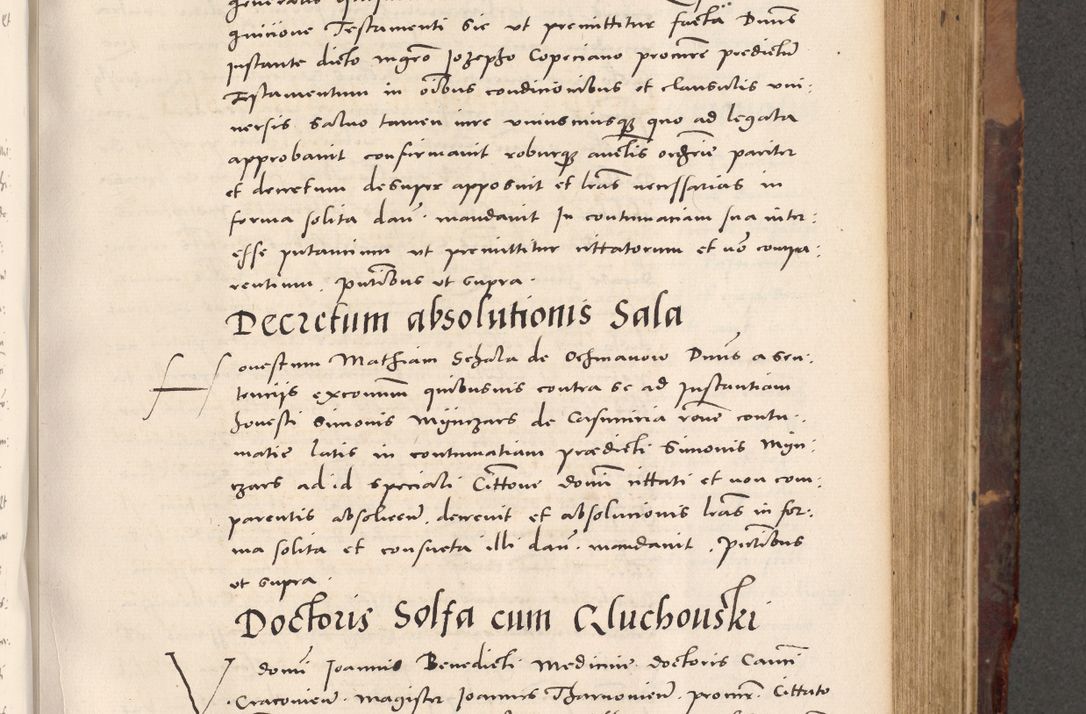 quicione Testamenti sic ut premittitur facta Dnus
Instante dicto mgro Iozepho Copeciano procure predictũ
Testamentum in oĩbus condicionibus et clausulis uni:
uersis saluo tamen iure uniuscuiusq quo ad legata
approbauit confirmauit roburq auctis ordrie pariter
et decretum desuper apposuit et lras necessarias in
forma solita dari mandauit In contumatiam sua inter:
esse putancium ut premittitur cittatorum et nõ compa:
rentium, pñtibus ut supra.
Decretum absolutionis Sala
Honestum Mathiam Schala de Ochmanow Dnus a sen:
tenciis excomm quibusuis contra se ad Instantiam
honesti Simonis Mynczars de Casimiria rõne contu:
matie latis in contumatiam prædicti Simonis Myn:
czars ad id speciali Cittone domi cittati et non com:
parentis absoluen decreuit et absolucionis lras in for:
ma solita et consueta illi dari mandauit. Pñtibus
ut supra.
Doctoris Solfa cum Cluchouski
V domi Joannis Benedicti Medicine doctoris Canci
Cracouien magister Joannes Tharnouien procur Cittato